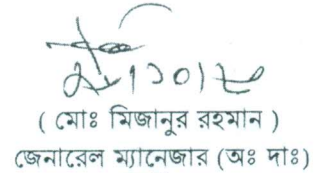 ( মোঃ মিজানুর রহমান )
জেনারেল ম্যানেজার (অঃ দাঃ)